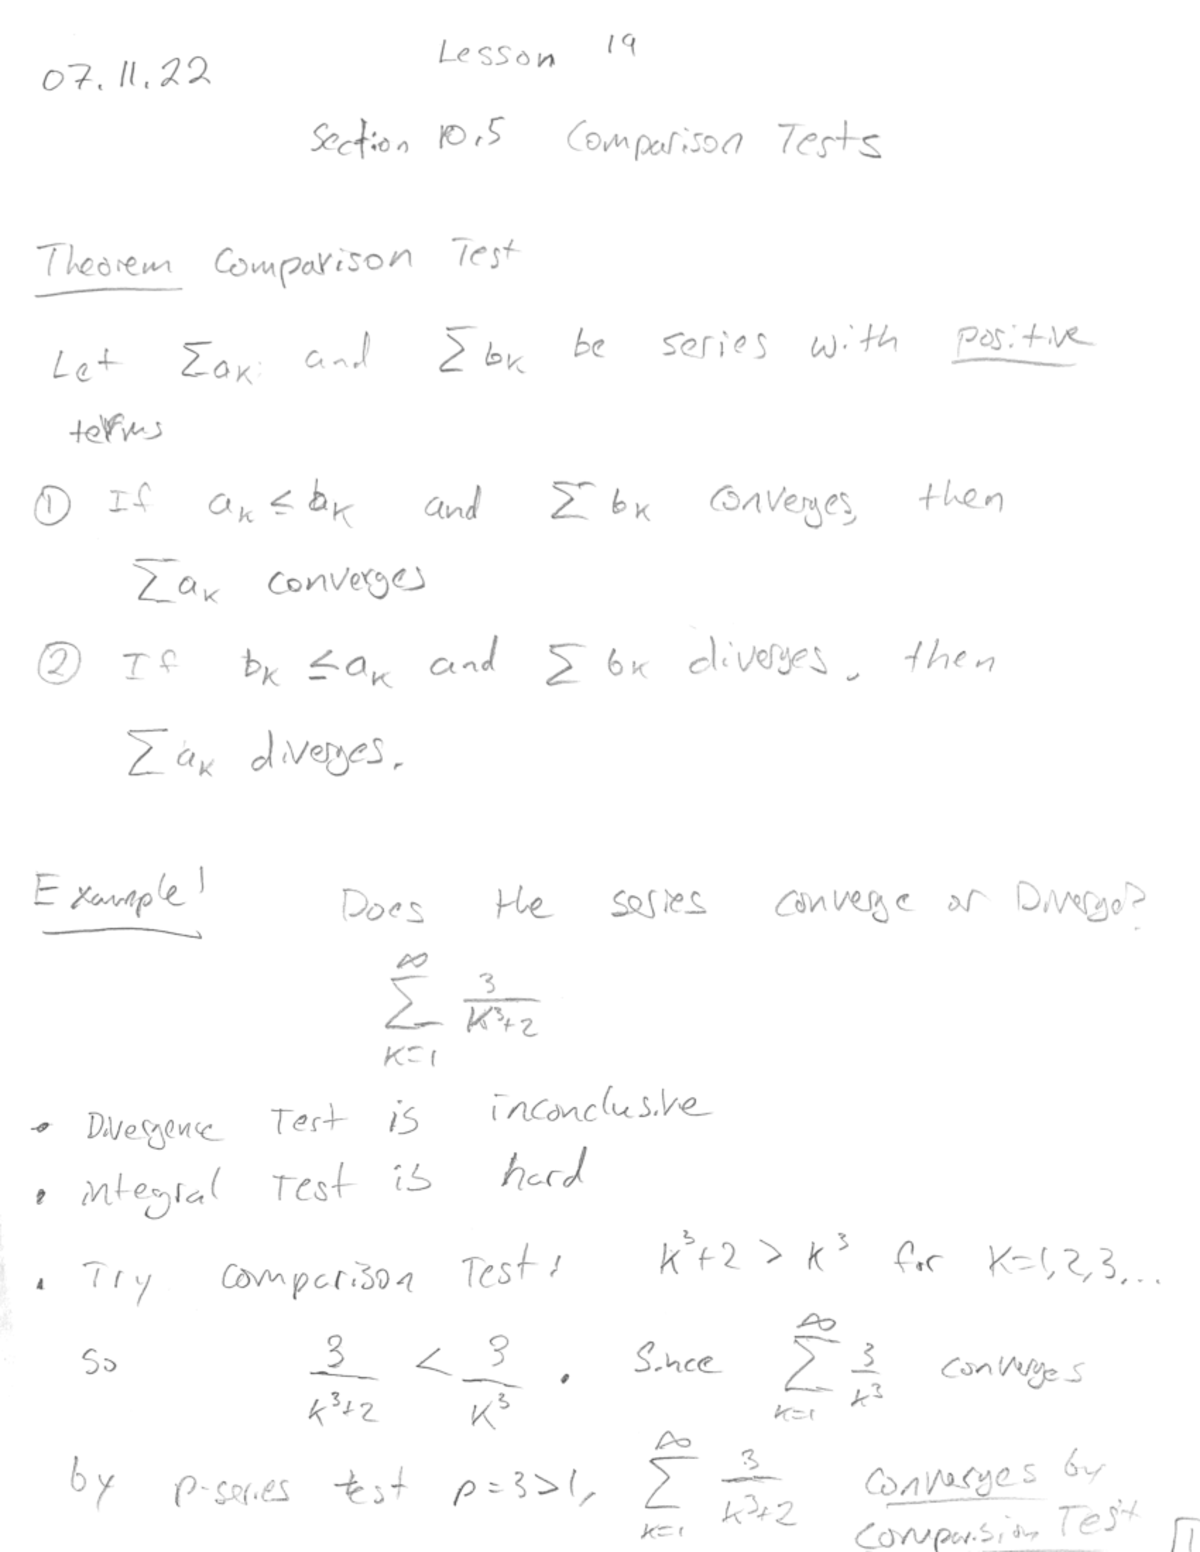 Lesson 19
07.11.22
Section 10.5 Comparison Tests
Theorem Comparison Test
Let Σaₖ and Σbₖ be series with positive
terms
① If aₖ ≤ bₖ and Σbₖ converges, then
Σaₖ converges
② If bₖ ≤ aₖ and Σbₖ diverges, then
Σaₖ diverges.
Example! Does the series converge or Diverge?
∞
Σ 3/(K³+2)
K=1
• Divergence Test is inconclusive
• integral Test is hard
• Try comparison Test: k³+2 > k³ for K=1,2,3,...
So 3/(k³+2) < 3/K³. Since ∞Σk=1 3/k³ converges
by p-series test p=3>1, ∞Σk=1 3/(k³+2) converges by
comparsion Test